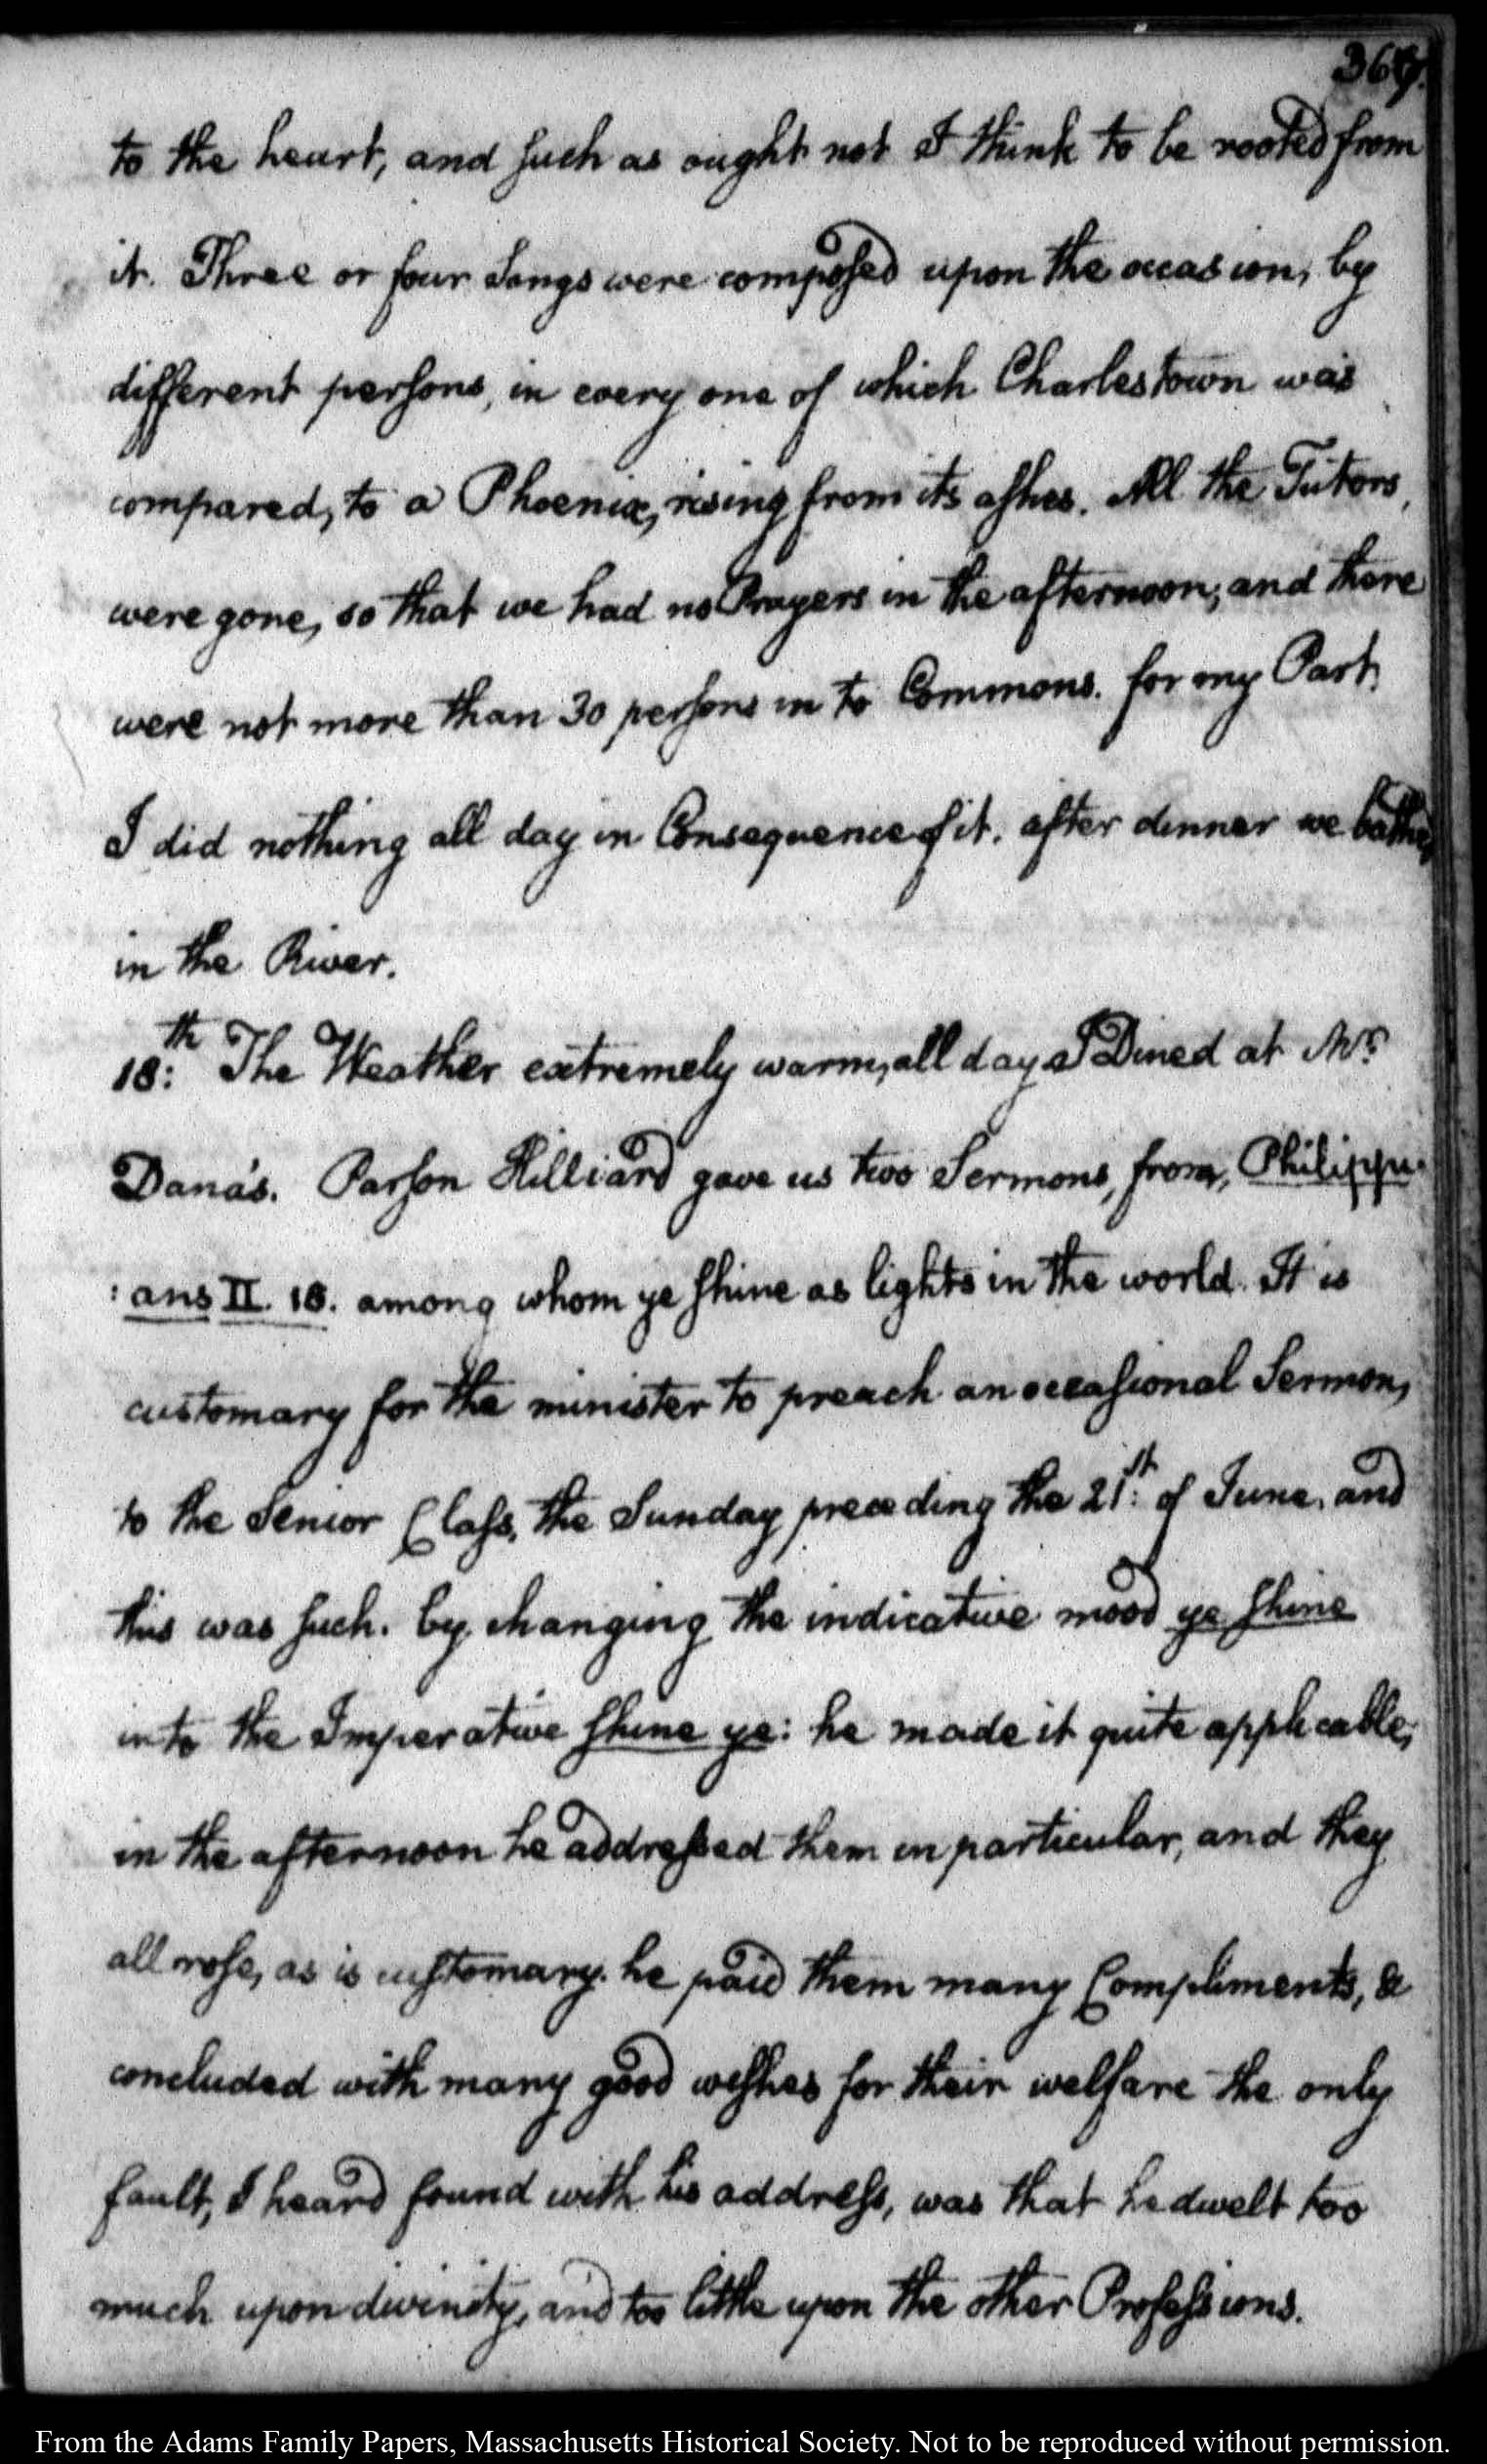 to the heart, and such as ought not I think to be rooted from
it. Three or four Songs were composed upon the occasion, by
different persons, in every one of which Charlestown was
compared, to a Phoenix, rising from its ashes. All the Tutors,
were gone, so that we had no Prayers in the afternoon, and there
were not more than 30 persons in to Commons. for my Part
I did nothing all day in Consequence of it. after dinner we bathed
in the River.
18th: The Weather extremely warm, all day I Dined at Mr.
Dana's. Parson Hilliard gave us two Sermons, from, Philippi-
:ans II. 15. among whom ye shine as lights in the world. It is
customary for the minister to preach an occasional Sermon,
to the Senior Class, the Sunday preceding the 21st: of June, and
this was such. by changing the indicative mood ye shine
into the Imperative shine ye: he made it quite applicable;
in the afternoon he addressed them in particular, and they
all rose, as is customary. he paid them many Compliments, &
concluded with many good wishes for their welfare the only
fault, I heard found with his address, was that he dwelt too
much upon divinity, and too little upon the other Professions.
From the Adams Family Papers, Massachusetts Historical Society. Not to be reproduced without permission.